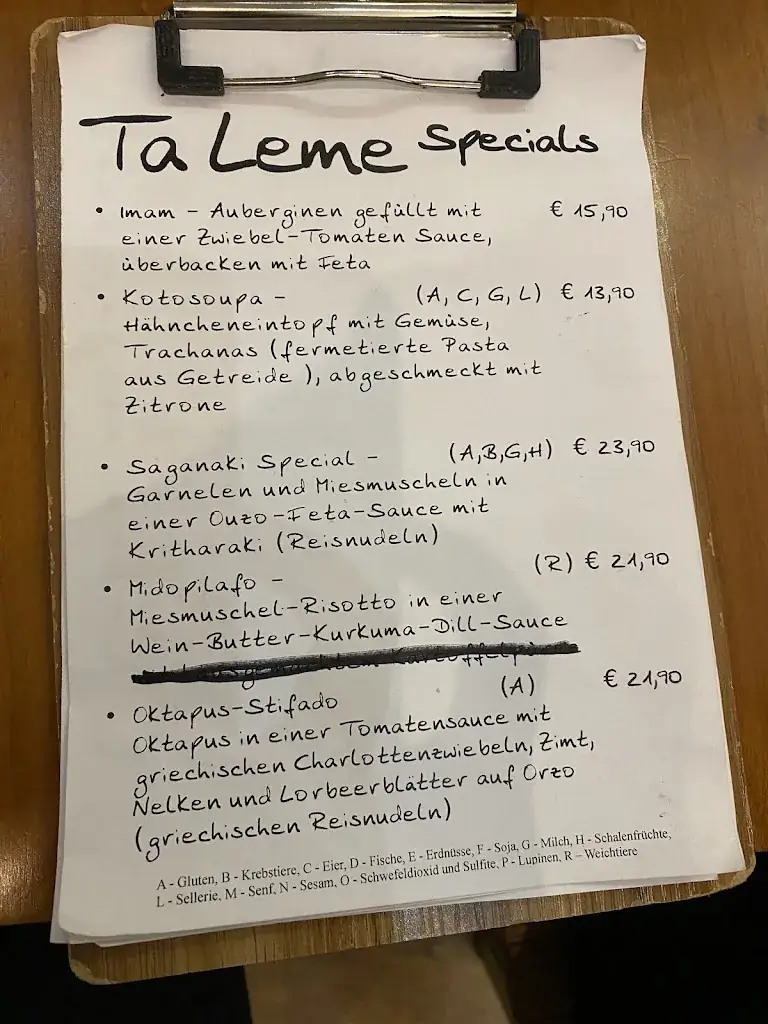 Ta Leme Specials
• Imam - Auberginen gefüllt mit € 15,90
einer Zwiebel-Tomaten Sauce,
überbacken mit Feta
• Kotosoupa - (A, C, G, L) € 13,90
Hähncheneintopf mit Gemüse,
Trachanas (fermetierte Pasta
aus Getreide ), abgeschmeckt mit
Zitrone
• Saganaki Special - (A,B,G,H) € 23,90
Garnelen und Miesmuscheln in
einer Ouzo-Feta-Sauce mit
Kritharaki (Reisnudeln)
• Midopilafo - (R) € 21,90
Miesmuschel-Risotto in einer
Wein-Butter-Kurkuma-Dill-Sauce
• Oktapus-Stifado (A) € 21,90
Oktapus in einer Tomatensauce mit
griechischen Charlottenzwiebeln, Zimt,
Nelken und Lorbeerblätter auf Orzo
(griechischen Reisnudeln)
A - Gluten, B - Krebstiere, C - Eier, D - Fische, E - Erdnüsse, F - Soja, G - Milch, H - Schalenfrüchte,
L - Sellerie, M - Senf, N - Sesam, O - Schwefeldioxid und Sulfite, P - Lupinen, R – Weichtiere